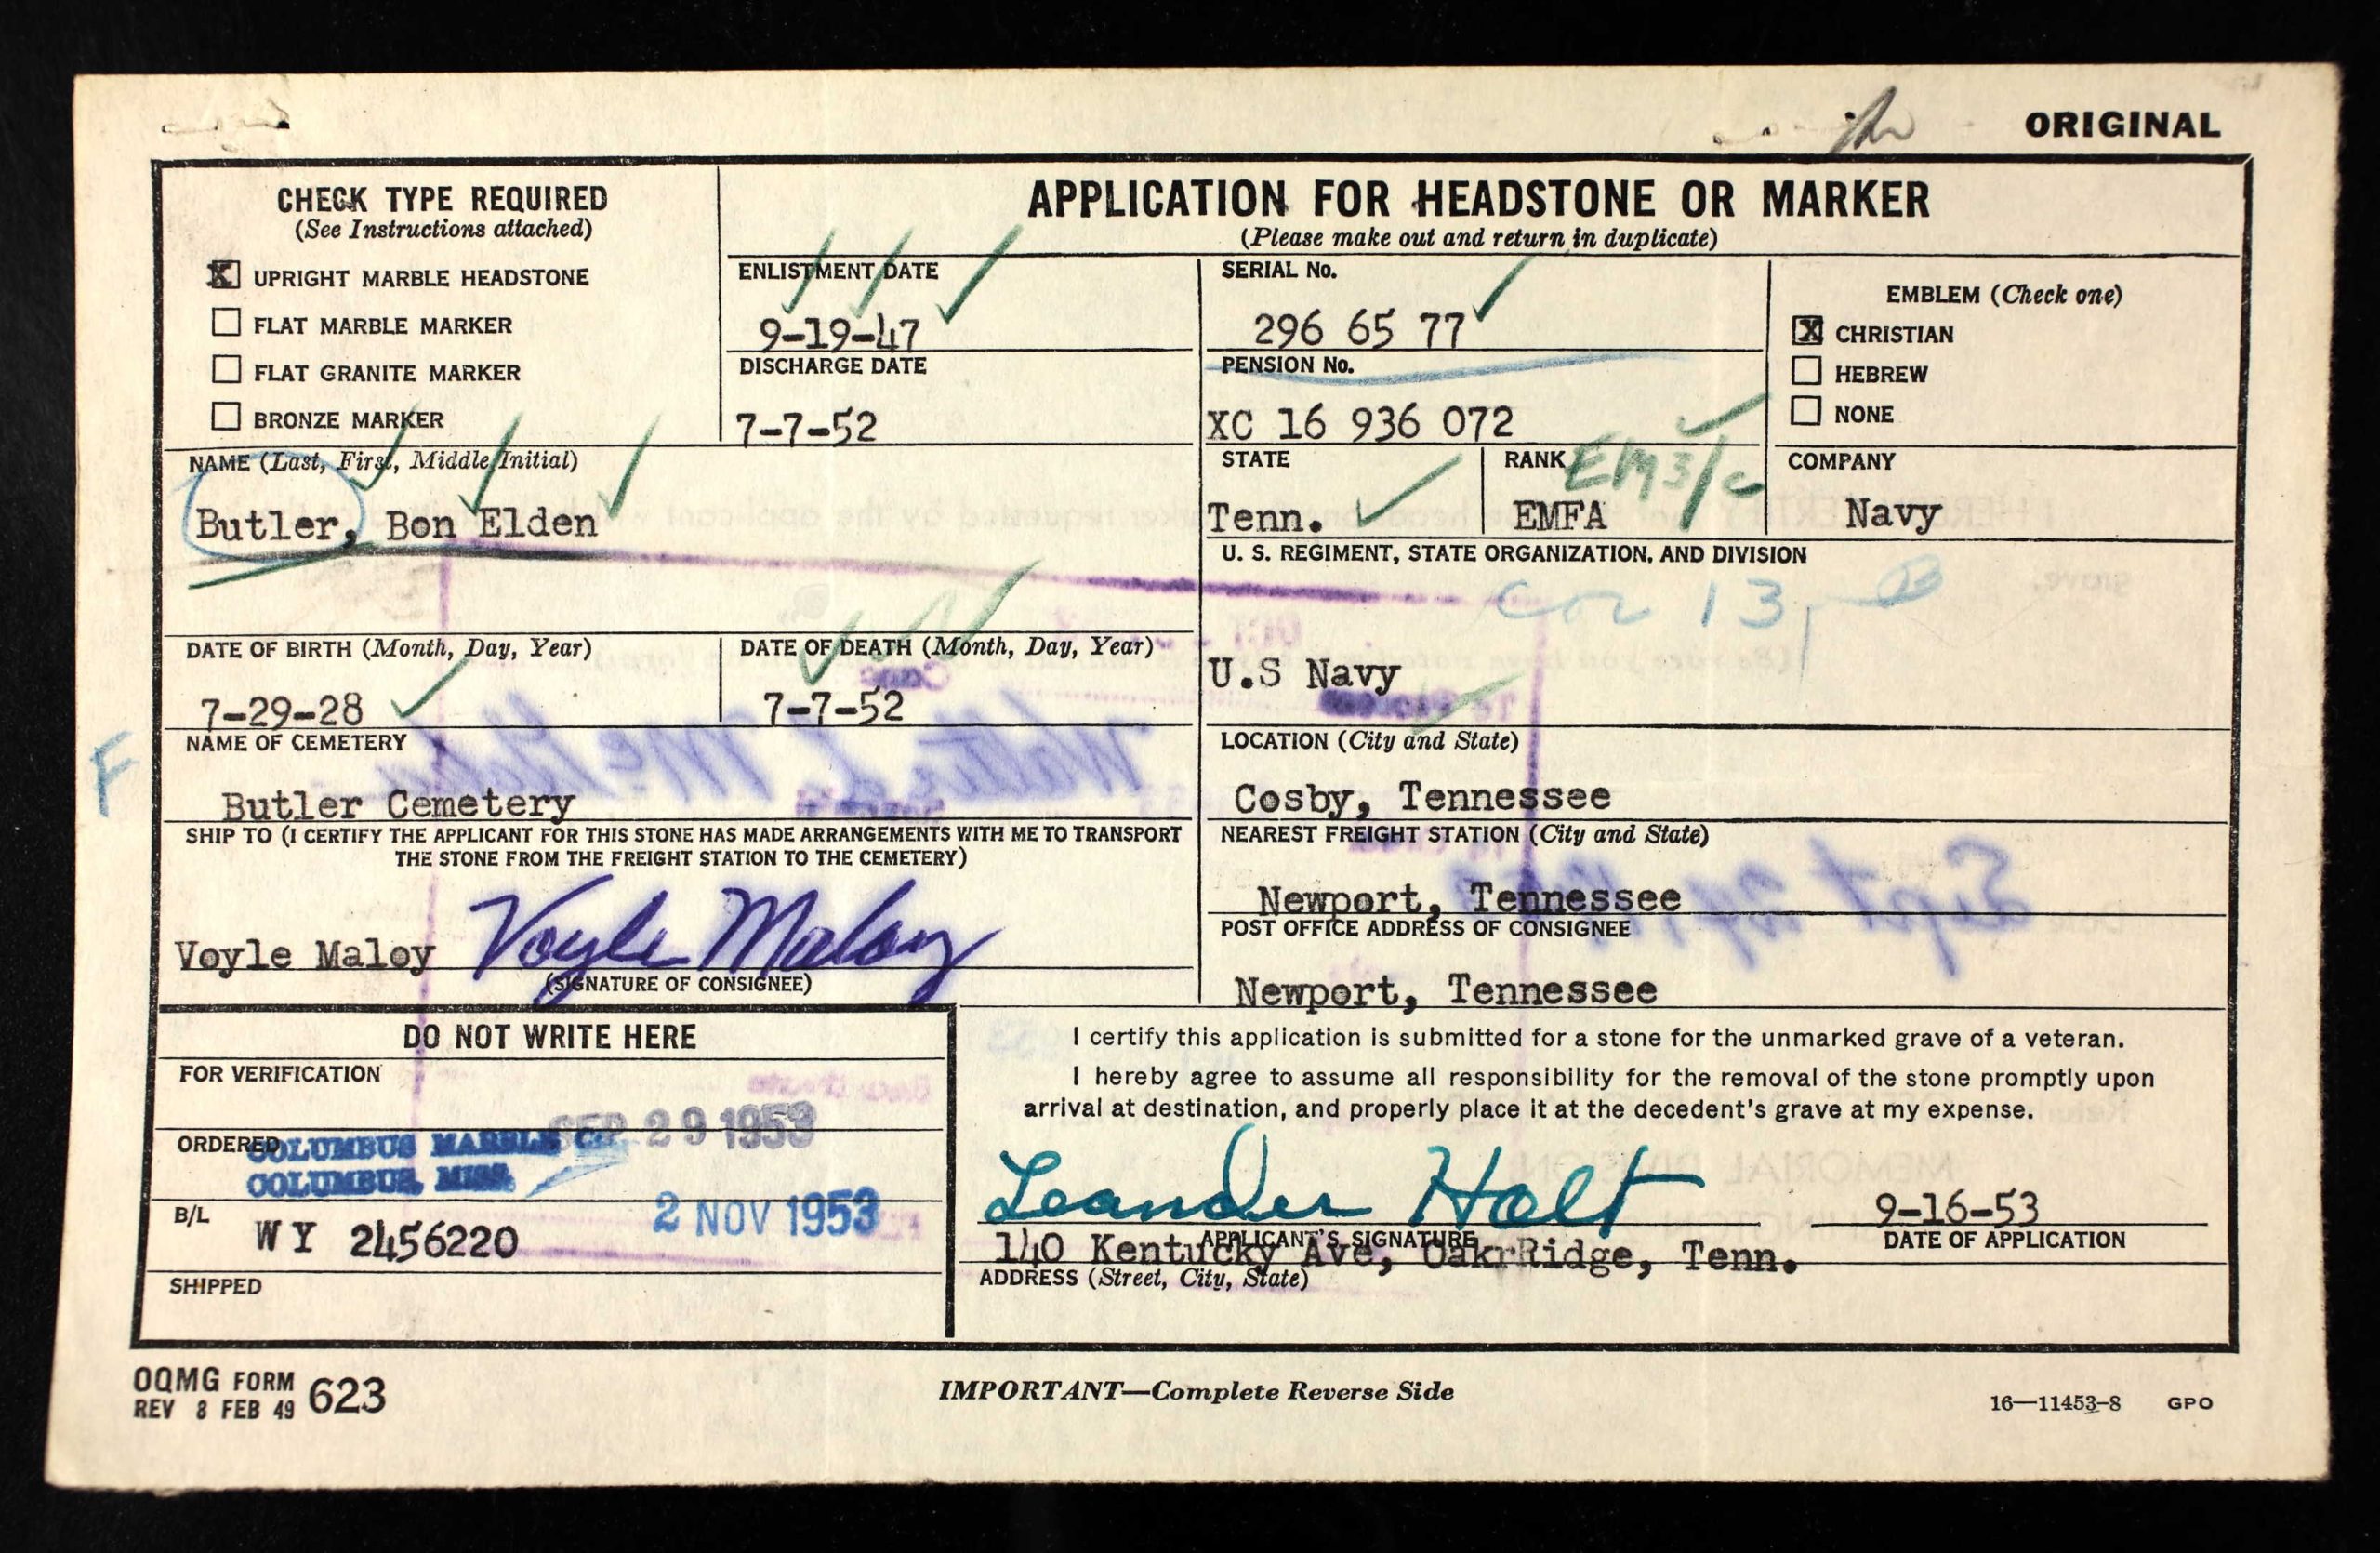 ORIGINAL
CHECK TYPE REQUIRED
(See Instructions attached)
X UPRIGHT MARBLE HEADSTONE
FLAT MARBLE MARKER
FLAT GRANITE MARKER
BRONZE MARKER
APPLICATION FOR HEADSTONE OR MARKER
(Please make out and return in duplicate)
ENLISTMENT DATE
9-19-47
DISCHARGE DATE
7-7-52
SERIAL No.
296 65 77
PENSION No.
XC 16 936 072
EMBLEM (Check one)
X CHRISTIAN
HEBREW
NONE
NAME (Last, First, Middle Initial)
Butler, Bon Elden
STATE
Tenn.
RANK
EM3/c
EMFA
COMPANY
Navy
U. S. REGIMENT, STATE ORGANIZATION, AND DIVISION
U.S Navy
DATE OF BIRTH (Month, Day, Year)
7-29-28
DATE OF DEATH (Month, Day, Year)
7-7-52
F
NAME OF CEMETERY
Butler Cemetery
LOCATION (City and State)
Cosby, Tennessee
SHIP TO (I CERTIFY THE APPLICANT FOR THIS STONE HAS MADE ARRANGEMENTS WITH ME TO TRANSPORT
THE STONE FROM THE FREIGHT STATION TO THE CEMETERY)
Voyle Maloy Voyle Maloy
(SIGNATURE OF CONSIGNEE)
NEAREST FREIGHT STATION (City and State)
Newport, Tennessee
POST OFFICE ADDRESS OF CONSIGNEE
Newport, Tennessee
DO NOT WRITE HERE
FOR VERIFICATION
SEP 29 1953
ORDERED
COLUMBUS MARBLE CO.
COLUMBUS, MISS.
B/L
WY 2456220
2 NOV 1953
SHIPPED
I certify this application is submitted for a stone for the unmarked grave of a veteran.
I hereby agree to assume all responsibility for the removal of the stone promptly upon
arrival at destination, and properly place it at the decedent's grave at my expense.
Leander Holt
9-16-53
APPLICANT'S SIGNATURE
DATE OF APPLICATION
140 Kentucky Ave, OakrRidge, Tenn.
ADDRESS (Street, City, State)
OQMG FORM 623
REV 8 FEB 49
IMPORTANT—Complete Reverse Side
16—11453-8 GPO